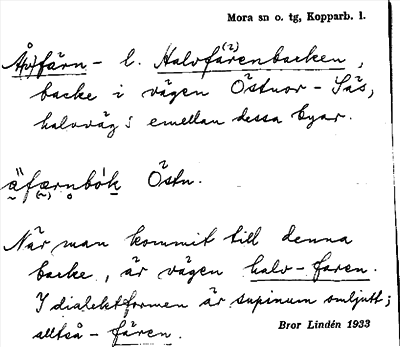 Mora sn o. tg, Kopparb. l.
färn- l. Halvfarenbacken,
backe i vägen Östnor-Sås,
halvvägs emellan dessa byar.
Östn.
När man kommit till denna
backe, är vägen halv-faren.
I dialektformen är supinum omljutt;
alltså - fären.
Bror Lindén 1933